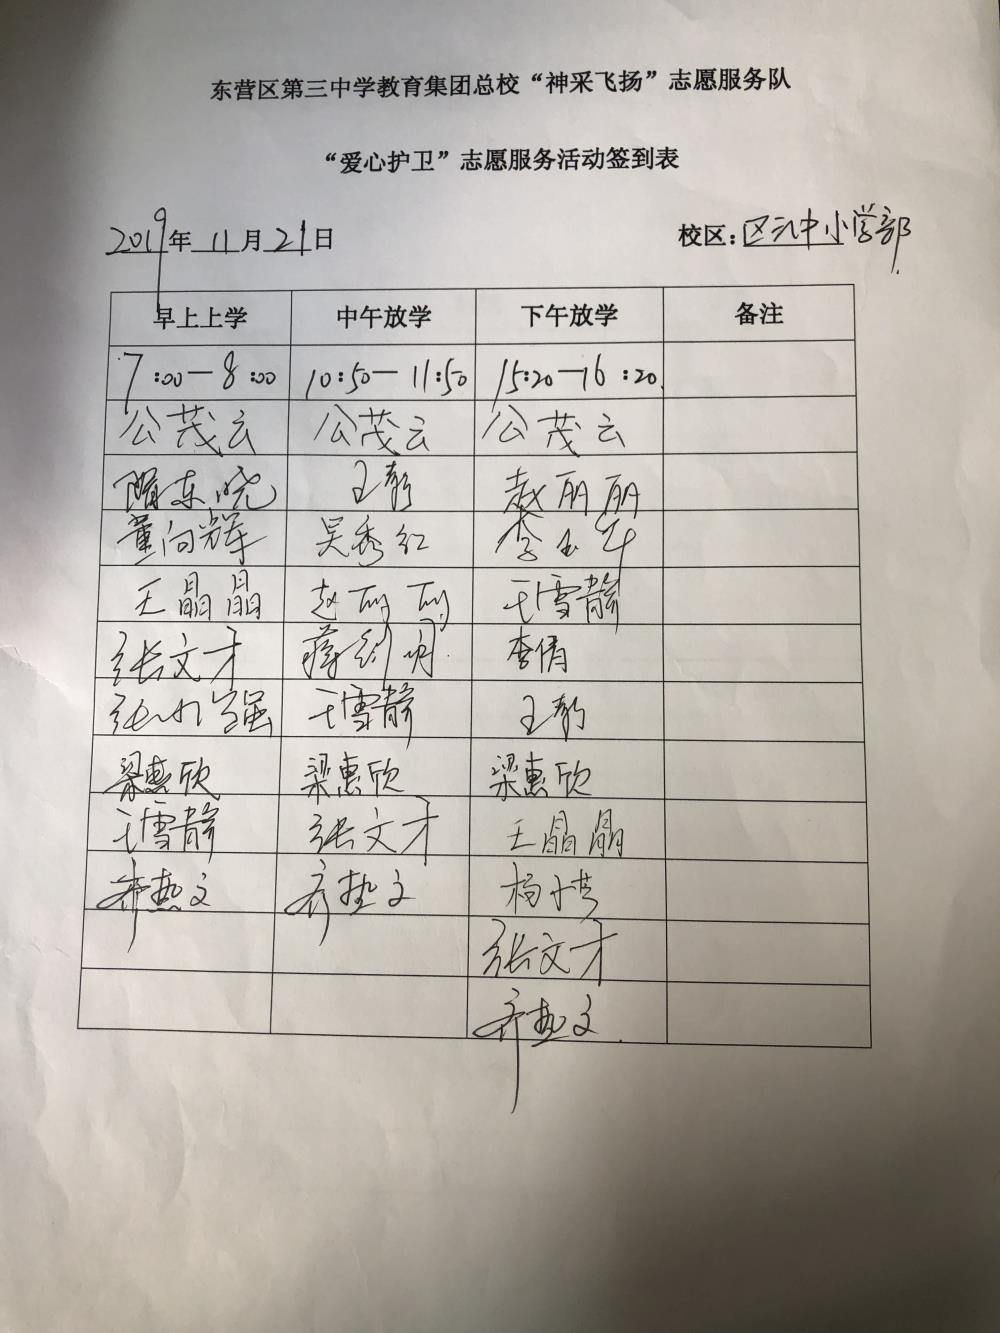 东营区第三中学教育集团总校“神采飞扬”志愿服务队
“爱心护卫”志愿服务活动签到表
2019年 11月21日 校区:区三中小学部
早上上学 中午放学 下午放学 备注
7:00—8:00 10:50—11:50 15:20—16:20
公茂云 公茂云 公茂云
隋东晓 王静 赵丽丽
董向辉 吴秀红 李玉军
王晶晶 赵丽丽 王雪静
张文才 李倩
王雪静 王静
梁惠欣 梁惠欣 梁惠欣
王雪静 张文才 王晶晶
齐艳文 齐艳文
张文才
齐艳文